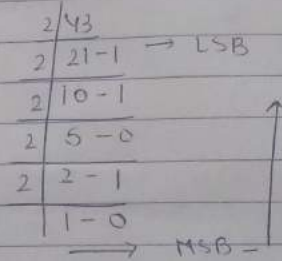 2 43
2 21-1 → LSB
2 10-1
2 5-0
2 2-1
1-0
→ MSB -